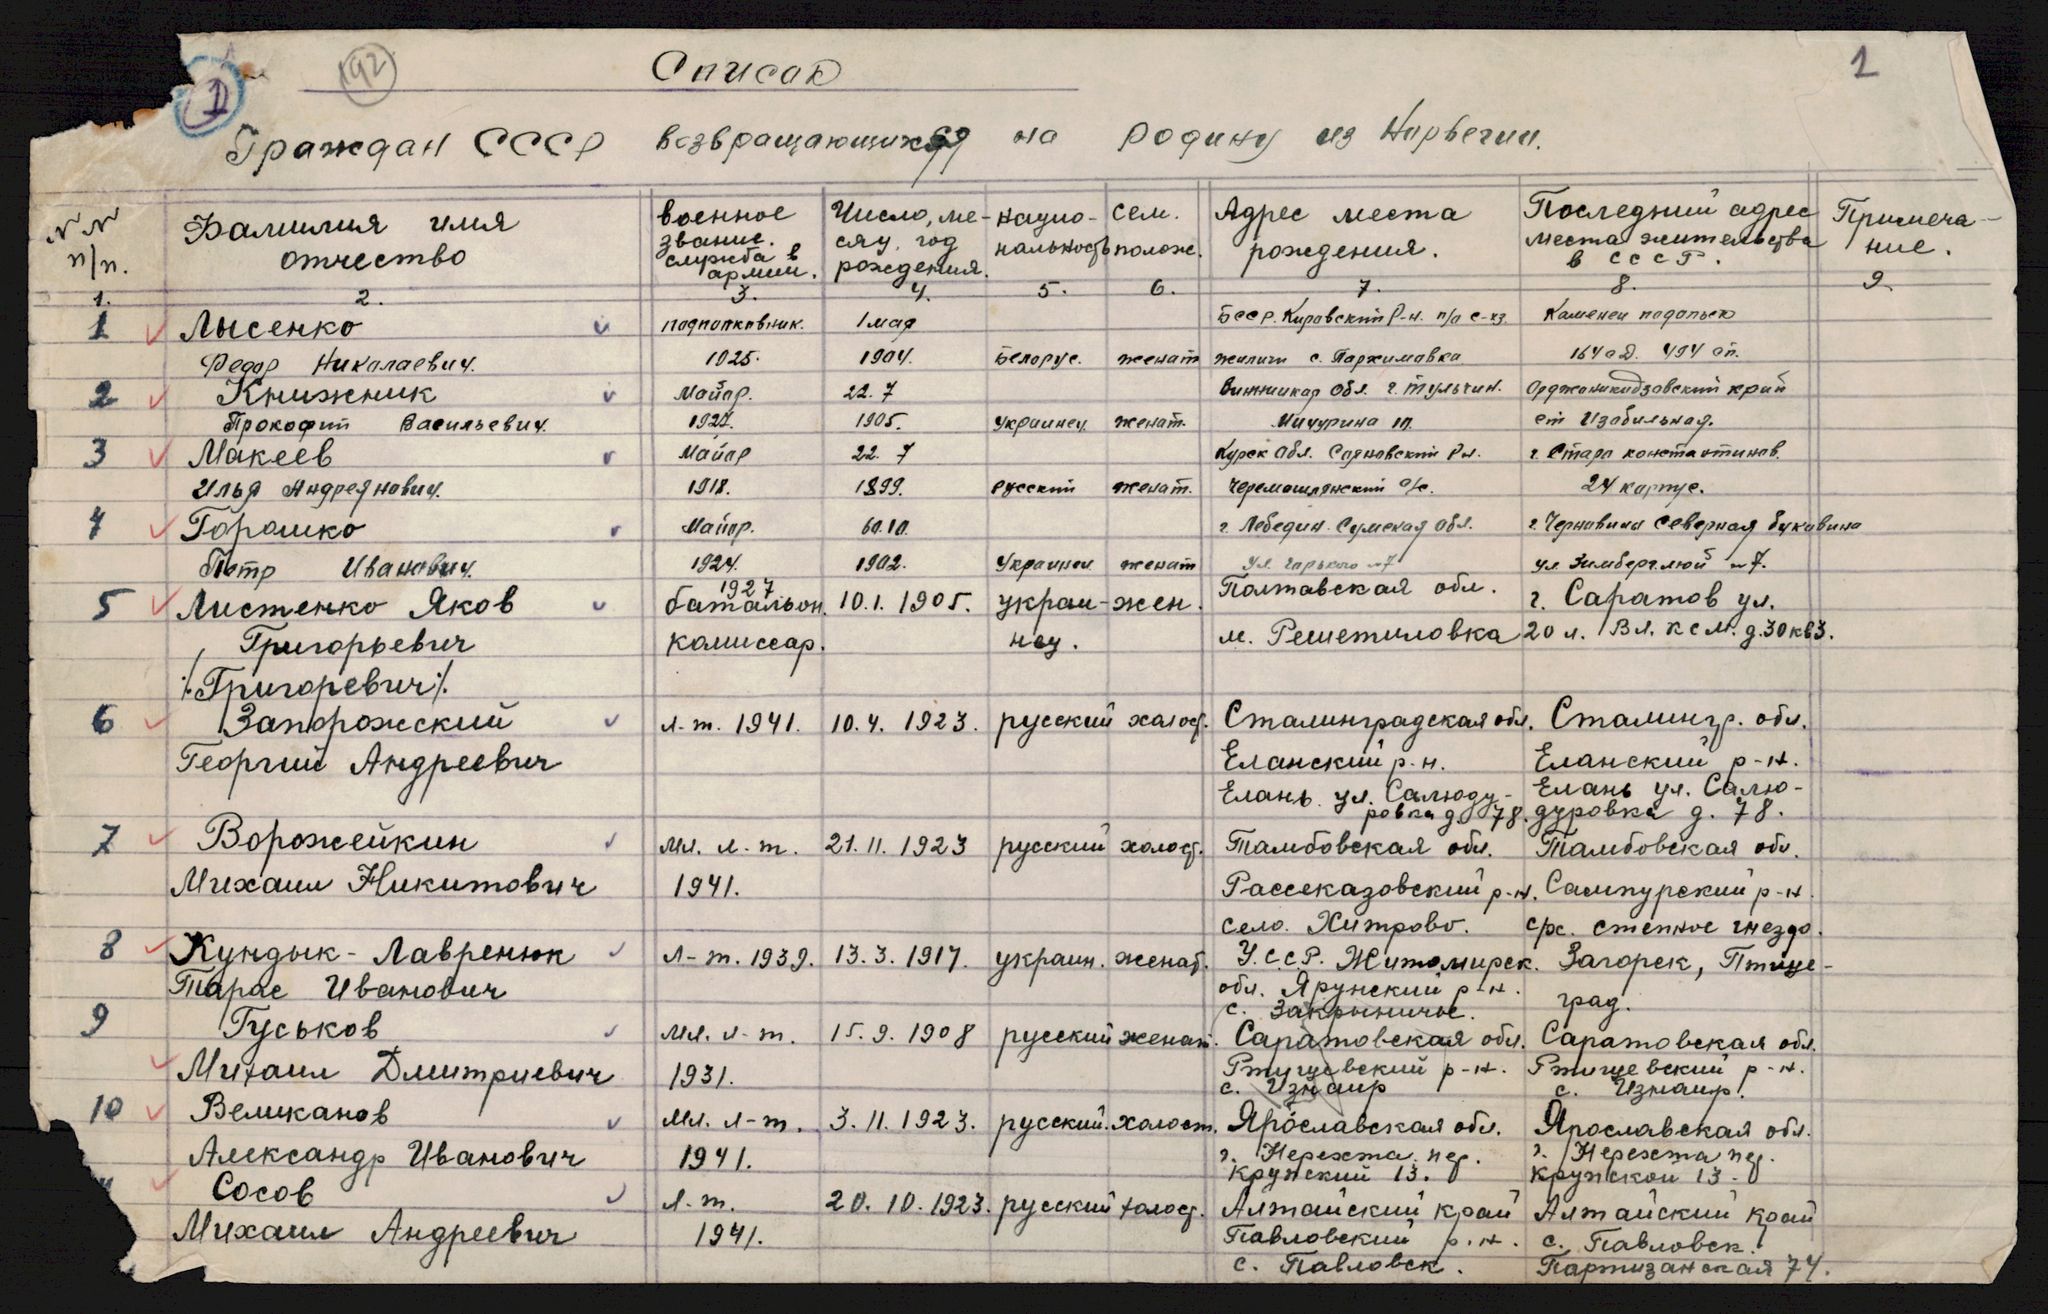 1
192
Список
1
Граждан СССР возвращающихся на родину из Норвегии.
№ № п/п. | Фамилия имя отчество | военное звание. служба в армии. | Число, месяц, год рождения. | нацио-нальность | сем. полож. | Адрес места рождения. | Последний адрес места жительства в СССР. | Примеча-ние.
1. 2. 3. 4. 5. 6. 7. 8. 9.
1 Лысенко подполковник. 1 мая БССР. Кировский р-н. п/о с-хз. Каменец подольск
Федор Николаевич. 1925. 1904. Белорус. женат жиличи с. Пархимовка 164 о.д. 494 ап.
2 Книжник Майор. 22. 7 Винницкая обл. г. Тульчин. Орджоникидзовский край
Прокофий Васильевич. 1927. 1905. украинец женат. Мичурина 10. ст Изобильная.
3 Макеев Майор 22. 7 Курск обл. Саяновский р-н. г. Старо константинов.
Илья Андреянович. 1918. 1899. русский женат. Черемошнянский с/с. 24 корпус.
4 Горошко Майор. 60.10. г. Лебедин. Сумская обл. г. Черновицы Северная буковина
Петр Иванович. 1924. 1902. Украинец женат ул. Горького 7 ул. 7.
5 Листенко Яков 1927 батальон. 10.1. 1905. украи- жен. Полтавская обл. г. Саратов ул.
Григорьевич комиссар. нец. м. Решетиловка 20 л. Вл. ксм. д. 30 кв 3.
/Григоревич/.
6 Запорожский л-т. 1941. 10. 4. 1923. русский холост. Сталинградская обл. Сталингр. обл.
Георгий Андреевич Еланский р-н. Еланский р-н.
Елань ул. Салюду- Елань ул. Салю-
ровка д. 78. дуровка д. 78.
7 Ворожейкин мл. л-т. 21. 11. 1923 русский холост. Тамбовская обл. Тамбовская обл.
Михаил Никитович 1941. Рассказовский р-н. Сампурский р-н.
село. Хитрово. с/х. степное гнездо.
8 Кундык-Лавренюк л-т. 1939. 13. 3. 1917. украин. женат. У.С.С.Р. Житомирск. Загорск, Птице-
Тарас Иванович обл. Ярунский р-н. град.
с. Закрыничье.
9 Гуськов мл. л-т. 15. 9. 1908 русский женат. Саратовская обл. Саратовская обл.
Михаил Дмитриевич 1931. Ртищевский р-н. Ртищевский р-н.
с. Изнаир с. Изнаир.
10 Великанов мл. л-т. 3. 11. 1923. русский. холост. Ярославская обл. Ярославская обл.
Александр Иванович 1941. г. Нерехта пер. г. Нерехта пер.
Крупский 13. крупской 13.
Сосов л-т. 20. 10. 1923. русский холост. Алтайский край Алтайский край
Михаил Андреевич 1941. Павловский р.н. с. Павловск.
с. Павловск. Партизанская 74.